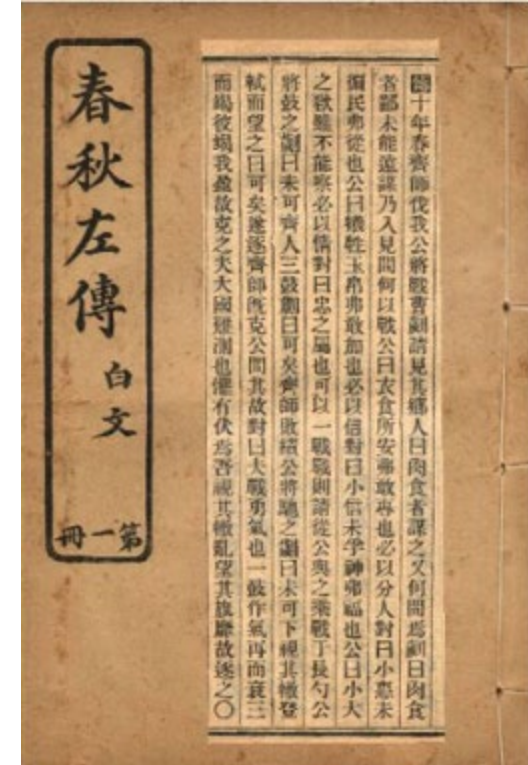 傳十年春齊師伐我公將戰曹劌請見其鄉人曰肉食者謀之又何間焉劌曰肉食
者鄙未能遠謀乃入見問何以戰公曰衣食所安弗敢專也必以分人對曰小惠未
徧民弗從也公曰犧牲玉帛弗敢加也必以信對曰小信未孚神弗福也公曰小大
之獄雖不能察必以情對曰忠之屬也可以一戰戰則請從公與之乘戰丁長勺公
將鼓之劌曰未可齊人三鼓劌曰可矣齊師敗績公將馳之劌曰未可下視其轍登
軾而望之曰可矣遂逐齊師既克公問其故對曰夫戰勇氣也一鼓作氣再而衰三
而竭彼竭我盈故克之夫大國難測也懼有伏焉吾視其轍亂望其旗靡故逐之〇
春秋左傳
白文
第一冊